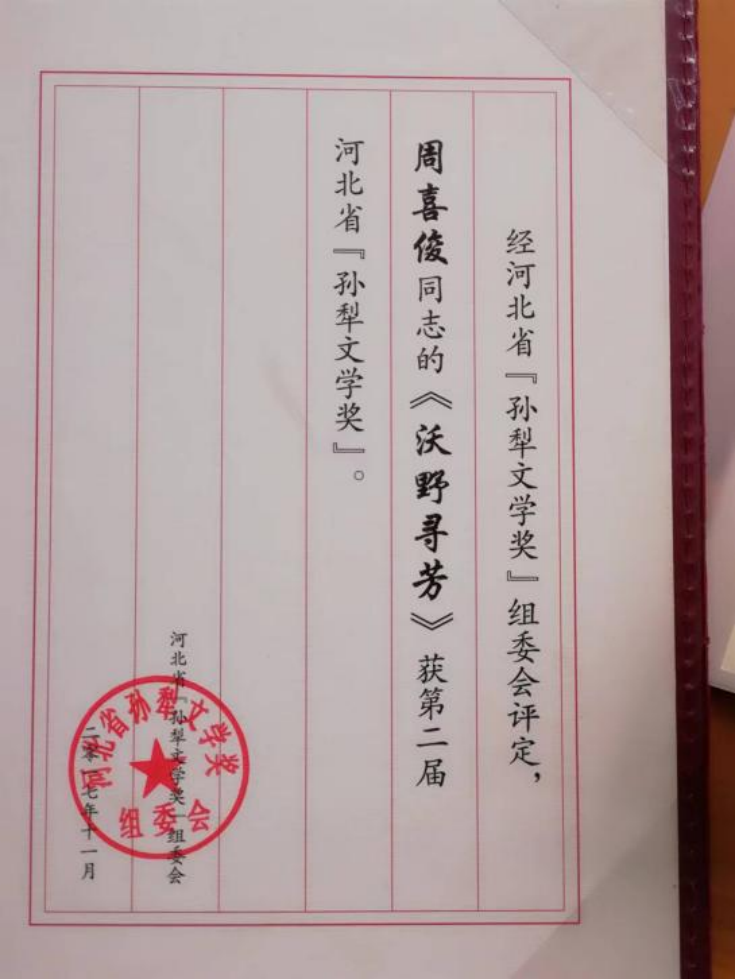 经河北省『孙犁文学奖』组委会评定，
周喜俊同志的《沃野寻芳》获第二届
河北省『孙犁文学奖』。
河北省『孙犁文学奖』组委会
二零一七年十一月
河北省孙犁文学奖
组委会